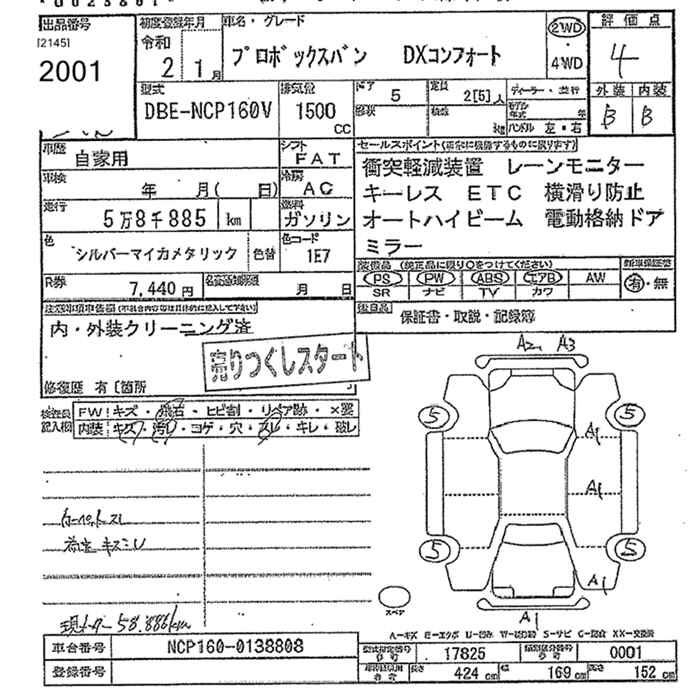 出品番号 初度登録年月 車名・グレード 2WD 評価点
[2145]
2001
令和
2 1月
プロボックスバン DXコンフォート
4WD
4
型式 排気量 ドア 定員 外装 内装
DBE-NCP160V 1500 CC 5 2[5]人 B B
形状 積載 kg ハンドル 左・右
車歴 自家用 シフト FAT セールスポイント
車検 年 月( 日) 冷房 AC
衝突軽減装置 レーンモニター
キーレス ETC 横滑り防止
オートハイビーム 電動格納ドア
ミラー
走行 5万8千885 km 燃料 ガソリン
色 シルバーマイカメタリック 色替 色コード 1E7
R券 7,440円 名義変更期限 月 日
装備品(純正品に限り○をつけてください) 新車保証書
PS PW ABS エアB AW 有・無
SR ナビ TV カワ
後日品 保証書・取説・記録簿
内・外装クリーニング済
売りつくしスタート
修復歴 有〔箇所
検査員記入欄
FW キズ・飛石・ヒビ割・リペア跡・×要
内装 キズ・汚れ・コゲ・穴・スレ・キレ・破レ
A2 A3
5 5
A1
A1
5 5
A1
A1
スペア
カーペットスレ
荷室キズスレ
現メーター58,886km
A-キズ E-エクボ U-凹み W-波打跡 S-サビ C-腐食 XX-交換済
車台番号 NCP160-0138808
型式指定番号 17825 類別区分番号 0001
登録番号
長さ 424 cm 幅 169 cm 高さ 152 cm